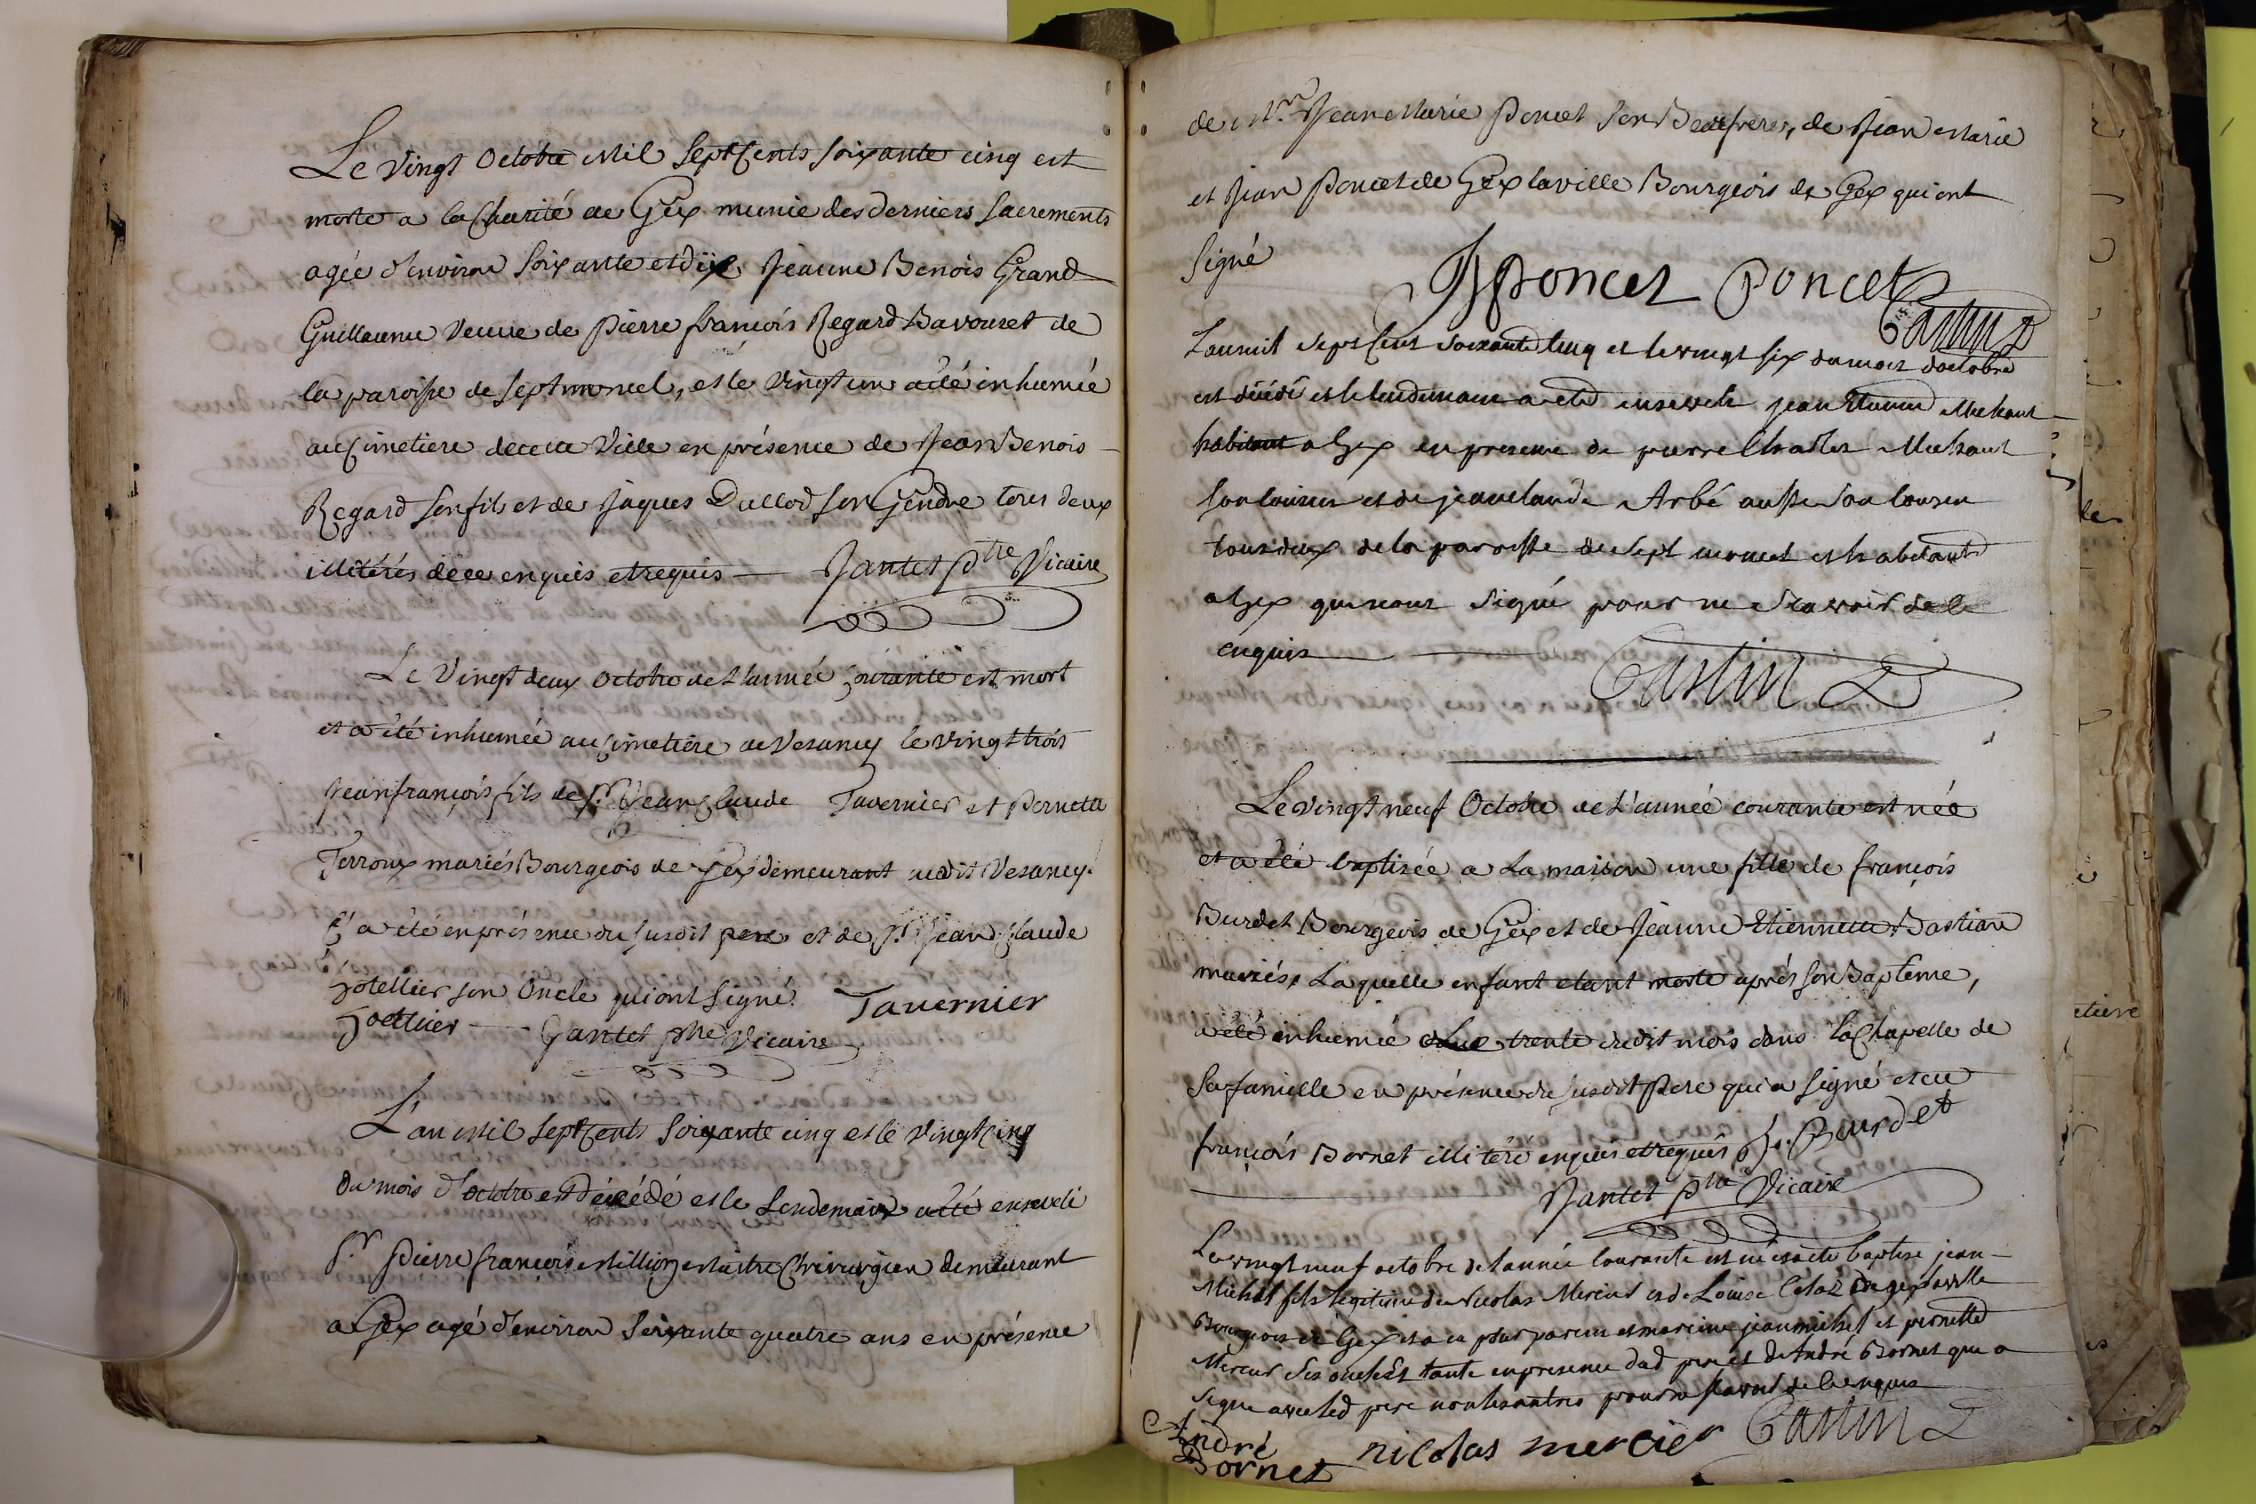 Le vingt Octobre Mil Sept Cents soixante cinq est
morte a la Charité de Gex munie des derniers sacrements
agée d'environ soixante et dix, Jeanne Benois Grand
Guillaume veuve de Pierre françois Regard Bavouzet de
la paroisse de Septmoncel, et le vingt un a été inhumée
au Cimetiere de cette Ville en présence de Jean Benois
Regard son fils et de Jaques Dullod son Gendre tous deux
illitérés de ce enquis et requis Jantet Ptre Vicaire
Le Vingt deux Octobre de l'année courante est mort
et a été inhumée au cimetiere de Vesancy le vingt trois
Jean françois fils de Sr. Jean Claude Tavernier et Pernette
Terroux mariés Bourgeois de Gex demeurant audit Vesancy.
C'a été en présence du susdit pere et de Sr. Jean Claude
son Oncle qui ont signé. Tavernier
Jantet ptre Vicaire
L'an Mil Sept Cents Soixante cinq et le vingt cinq
du mois d'octobre est décédé et le Lendemain a été enseveli
Sr. Pierre françois Million Maitre Chirurgien demeurant
a Gex agé d'environ soixante quatre ans en présence
de Mr. Jean Marie Poncet son Beaufrere, de Jean Marie
et Jean Poncet de Gex la ville Bourgeois de Gex qui ont
signé
Poncet Poncet
Castin
L'an mil sept cent soixante cinq et le vingt six du mois d'octobre
est décédé et le lendemain a eté enseveli jean Etienne Michaut
habitant a Gex en presence de pierre Charles Michaut
son cousin et de jean claude Arbé aussi son cousin
tous deux de la paroisse de sept moncel et habitants
a Gex qui n'ont signé pour ne scavoir de ce
enquis
Castin
Le vingt neuf Octobre de l'année courante est née
et a été baptisée a la maison une fille de françois
Burdet Bourgeois de Gex et de Jeanne Etiennette Bastian
mariés, Laquelle enfant etant morte après son Baptême,
a été inhumée trente dudit mois dans la Chapelle de
sa famille en présence du susdit Pere qui a signé et de
françois Bornet illitéré enquis et requis fr. Burdet
Jantet ptre Vicaire
Le vingt neuf octobre de l'année courante est né et a eté baptisé jean
Michel fils legitime de Nicolas Mercier et de Louise de gex la ville
Bourgeois de Gex et a eu pour parein et mareine jean michel et pernette
Mercier ses oncle et tante en presence dud pere et de André Bornet qui a
signé avec led pere non les autres pour ne scavoir de ce enquis
André
Bornet nicolas mercier Castin